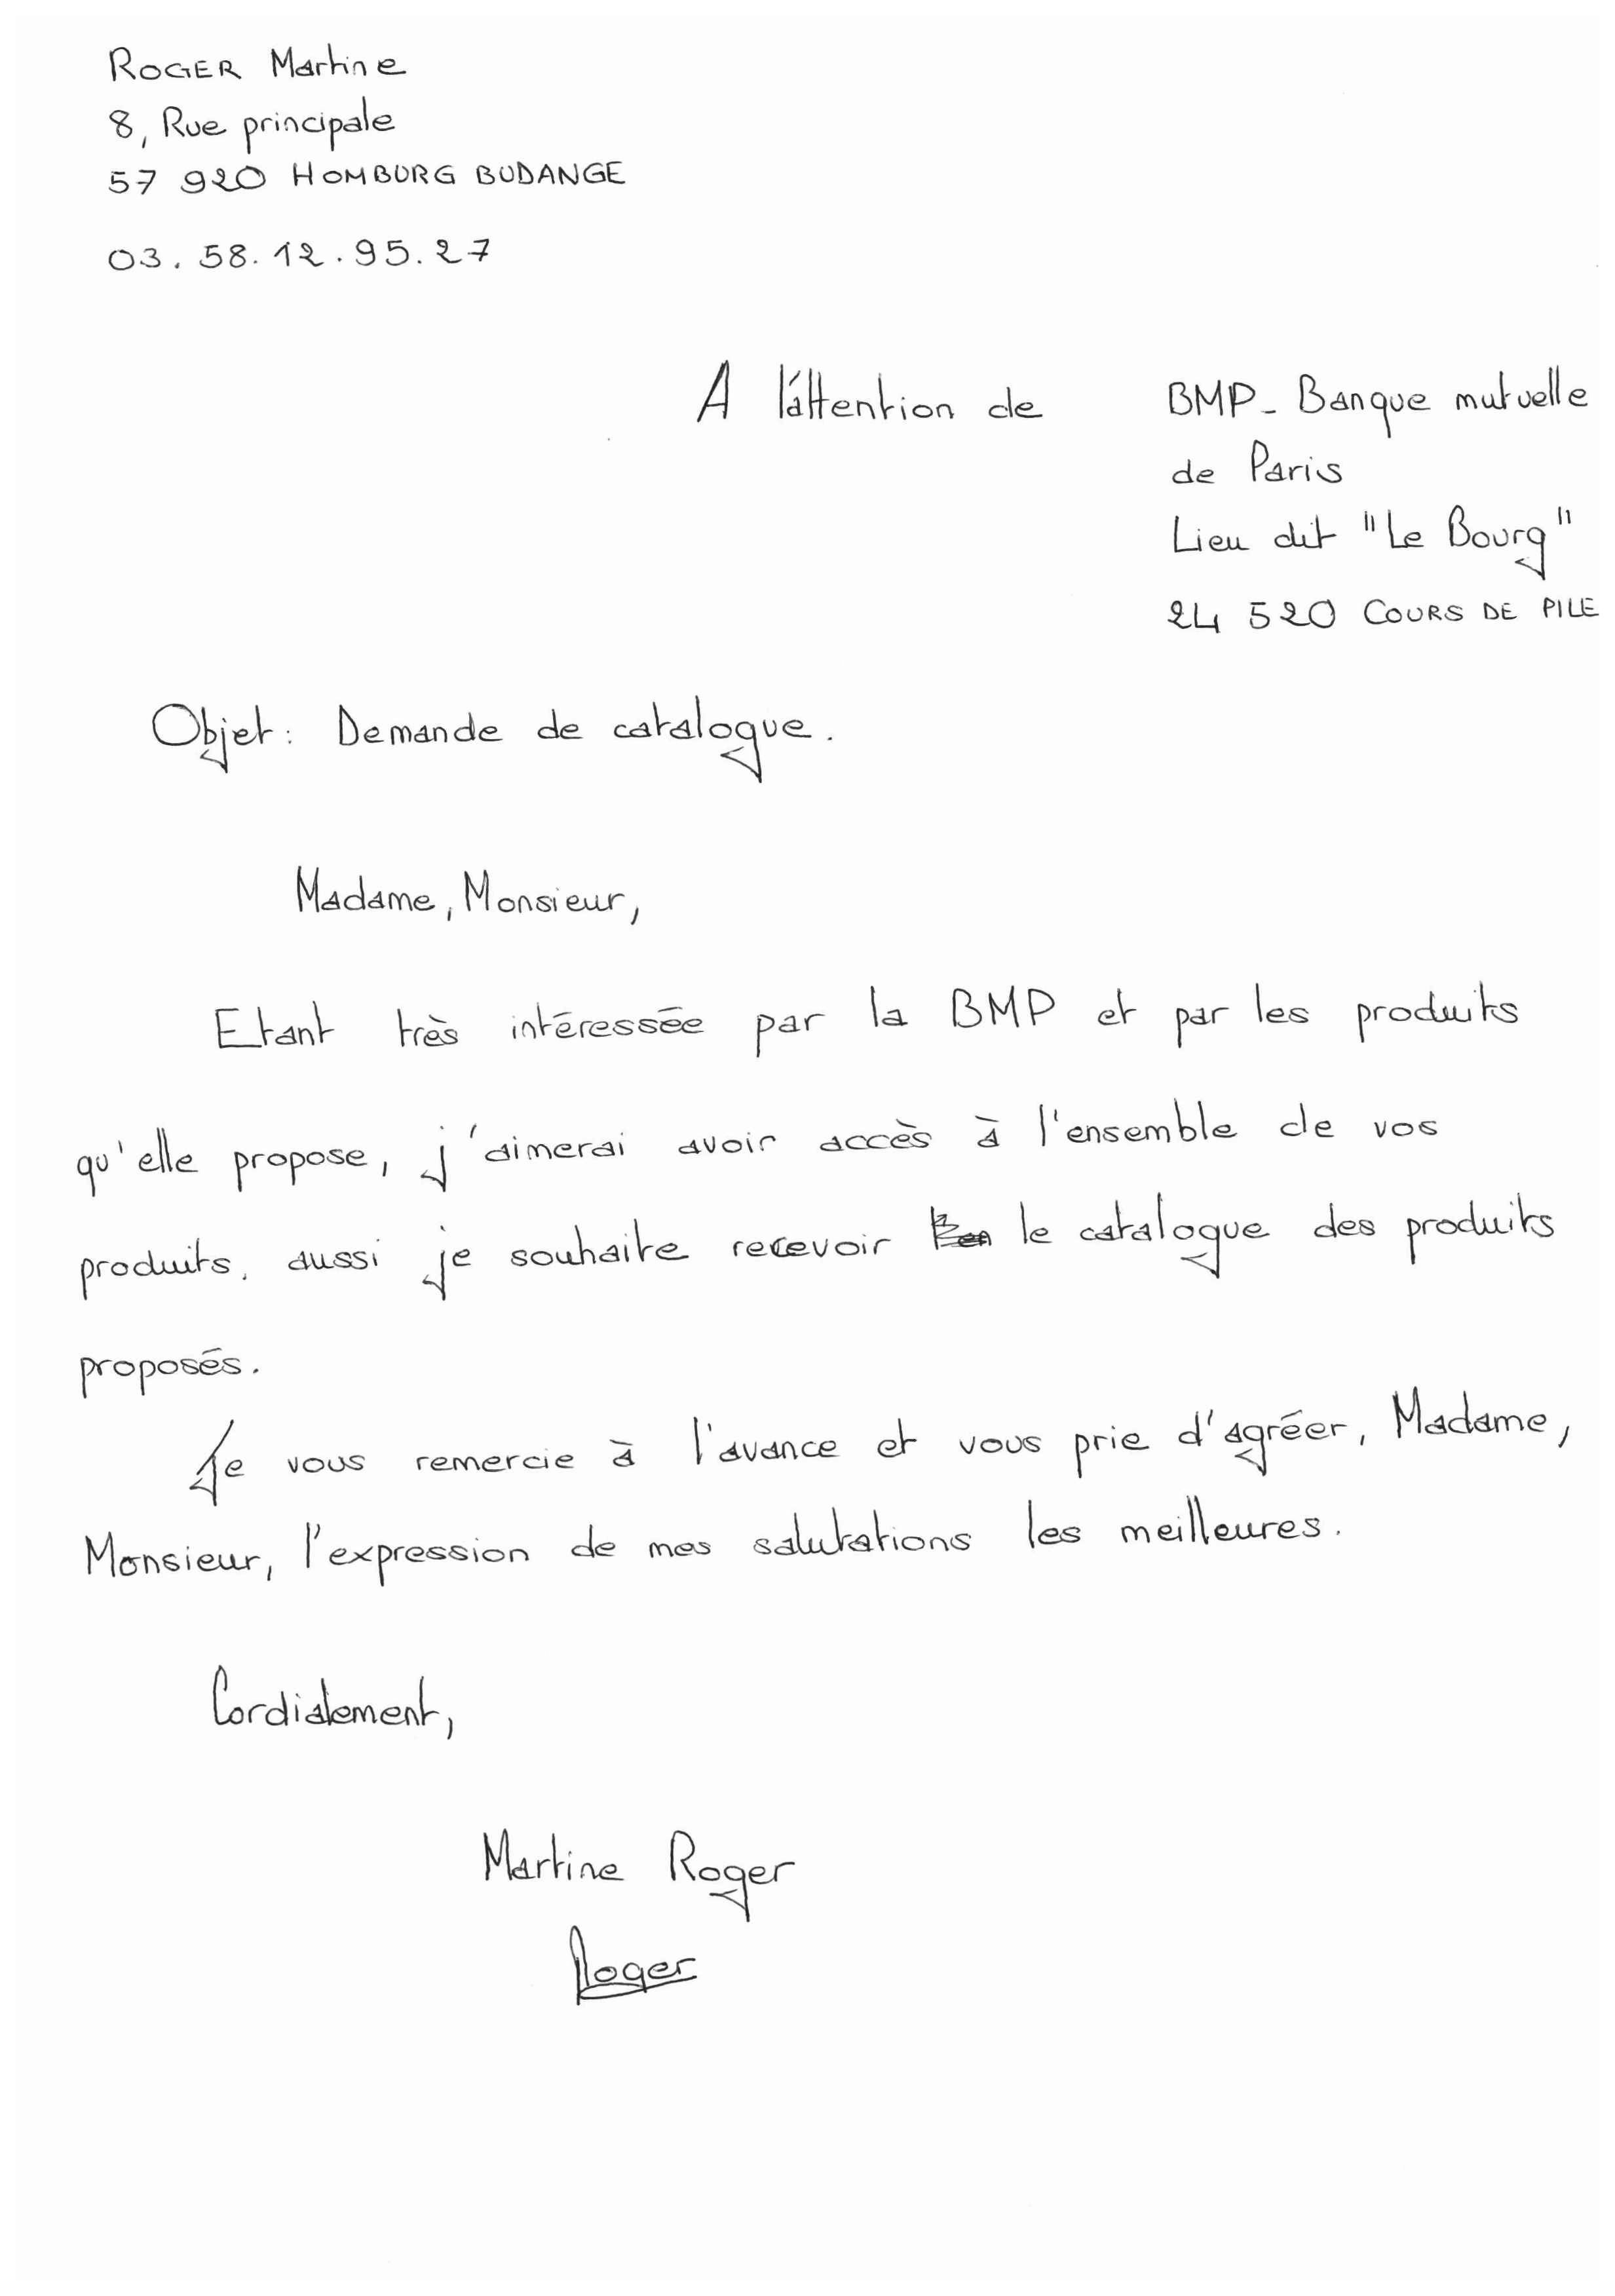 ROGER Martine
8, Rue principale
57 920 HOMBURG BUDANGE
03. 58. 12. 95. 27
A l'attention de BMP_ Banque mutuelle
de Paris
Lieu dit "Le Bourg"
24 520 COURS DE PILE
Objet: Demande de catalogue.
Madame, Monsieur,
Etant très intéressée par la BMP et par les produits
qu'elle propose, j'aimerai avoir accès à l'ensemble de vos
produits, aussi je souhaite recevoir le catalogue des produits
proposés.
Je vous remercie à l'avance et vous prie d'agréer, Madame,
Monsieur, l'expression de mes salutations les meilleures.
Cordialement,
Martine Roger
Roger